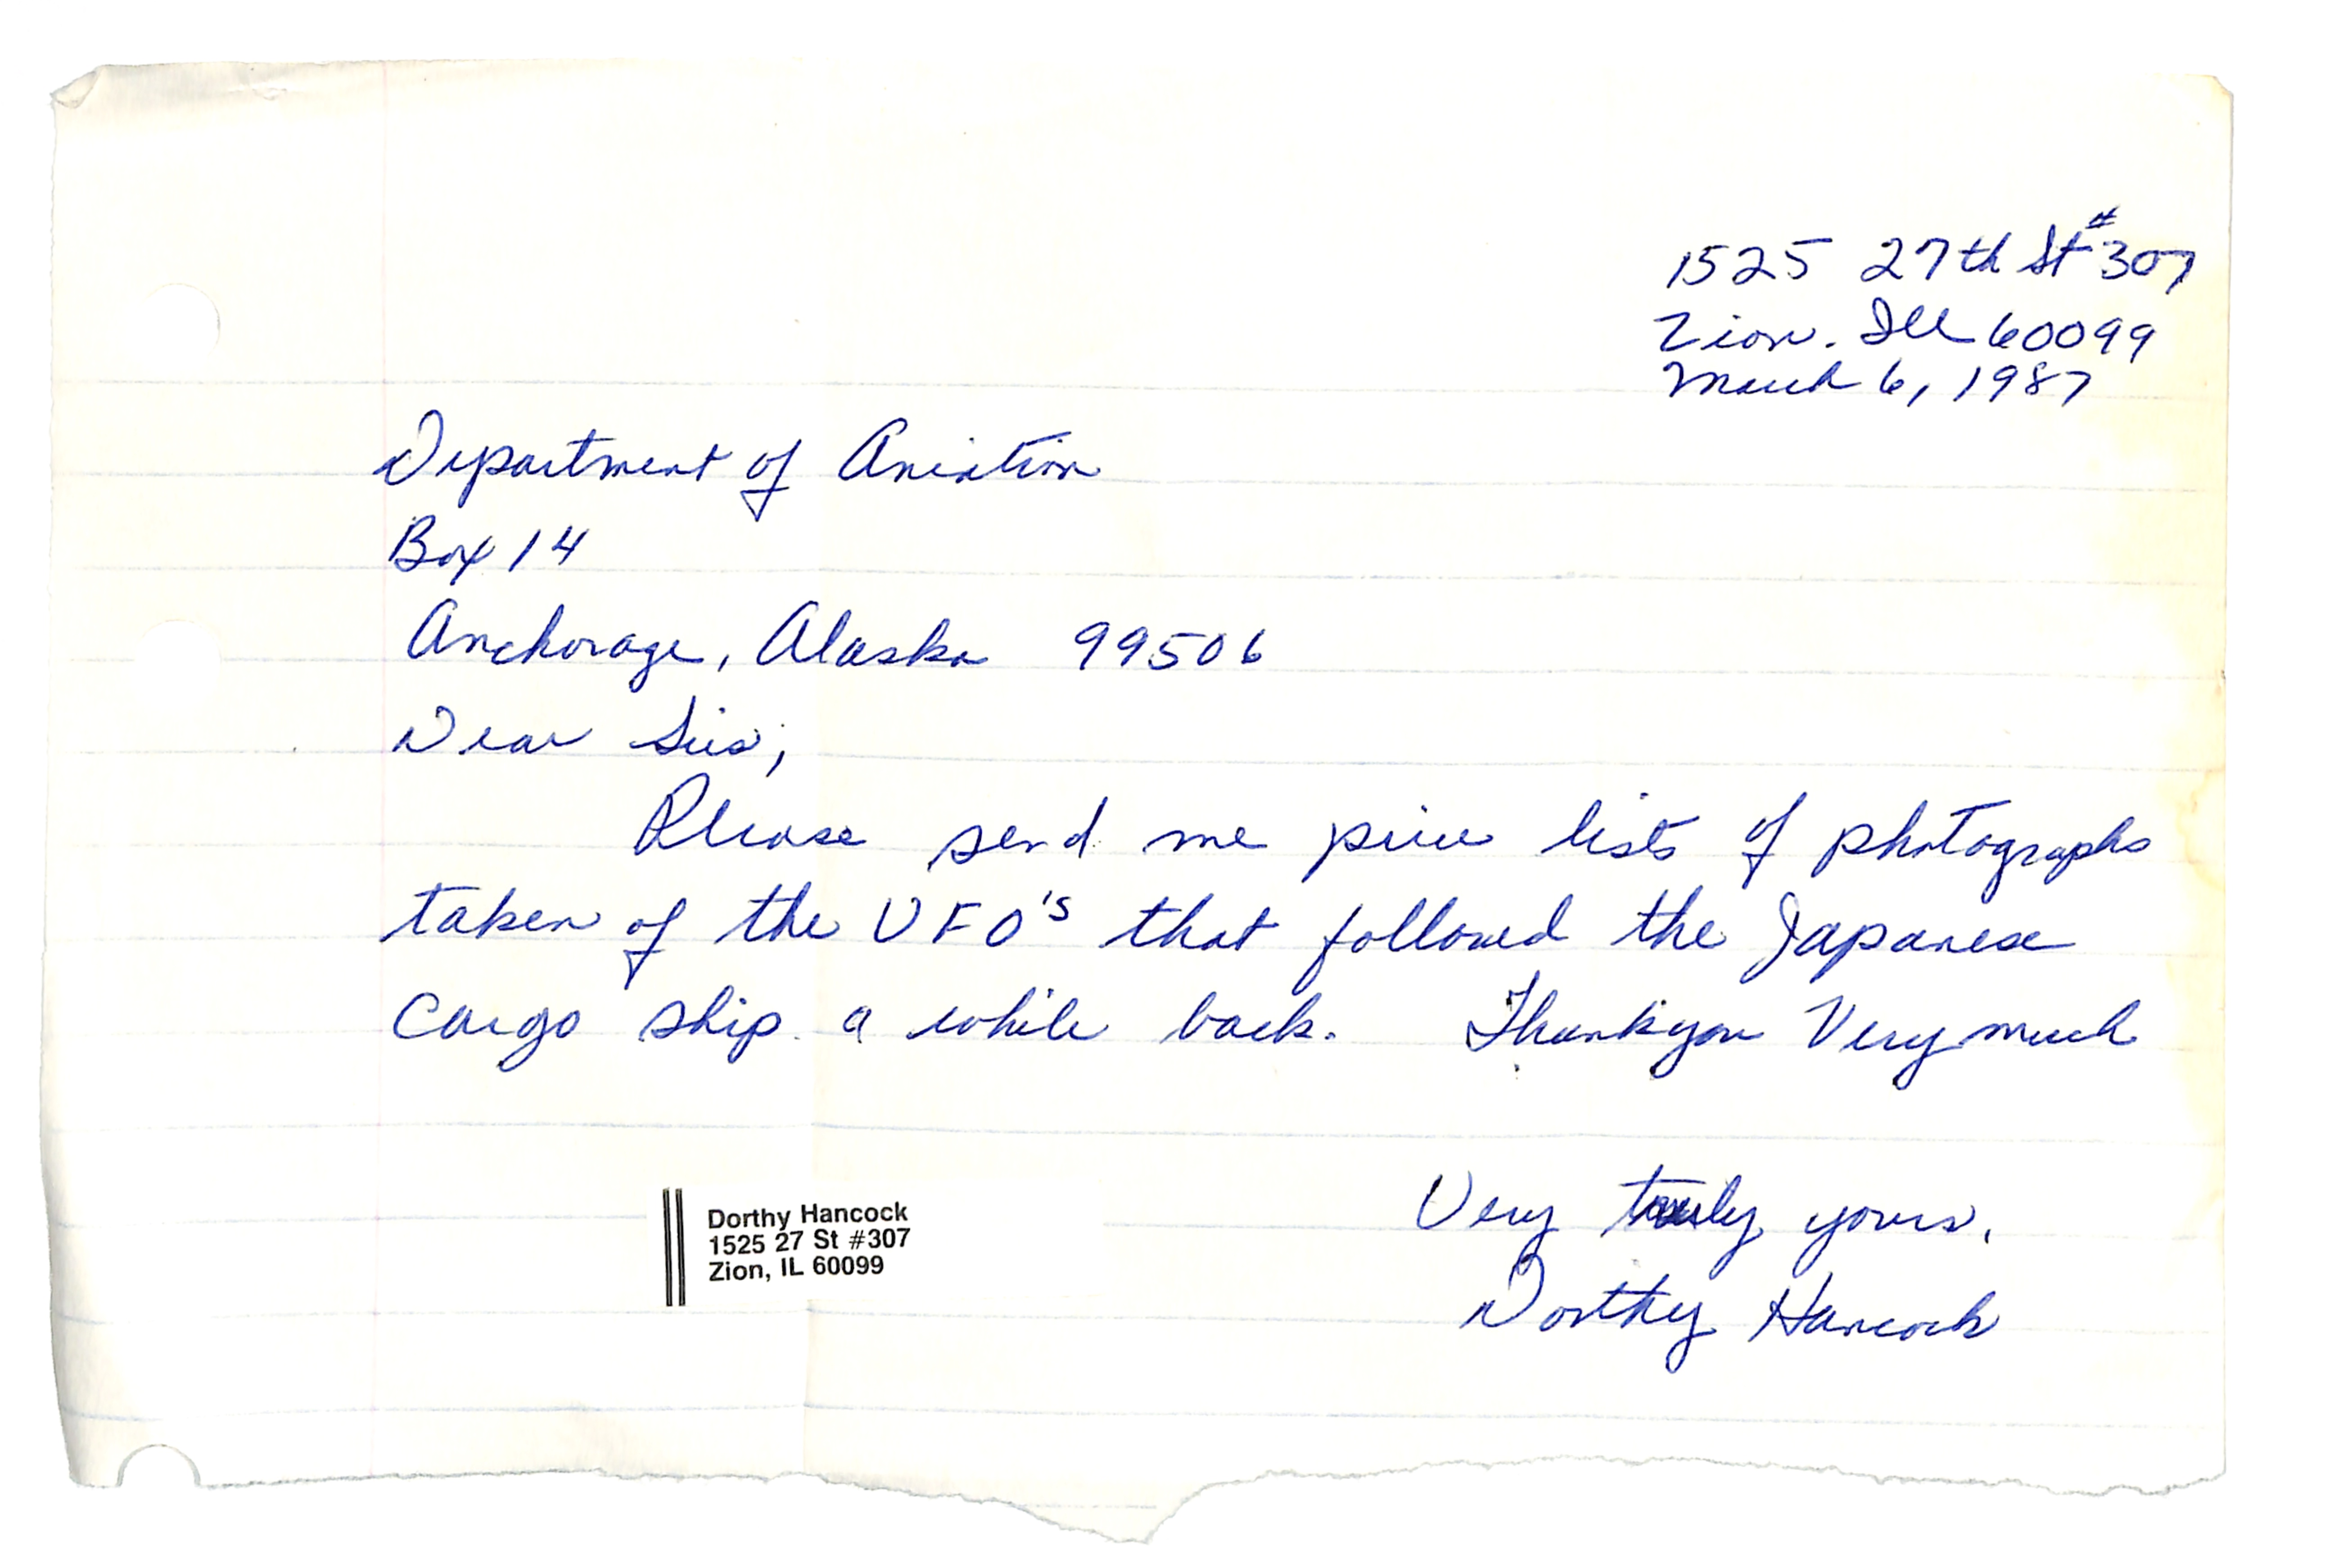 1525 27th St #307
Zion. Ill 60099
March 6, 1987
Department of Aviation
Box 14
Anchorage, Alaska 99506
Dear Sirs,
Please send me price lists of photographs
taken of the UFO's that followed the Japanese
cargo ship a while back. Thankyou Very much
Very truly yours,
Dorthy Hancock
Dorthy Hancock
1525 27 St #307
Zion, IL 60099